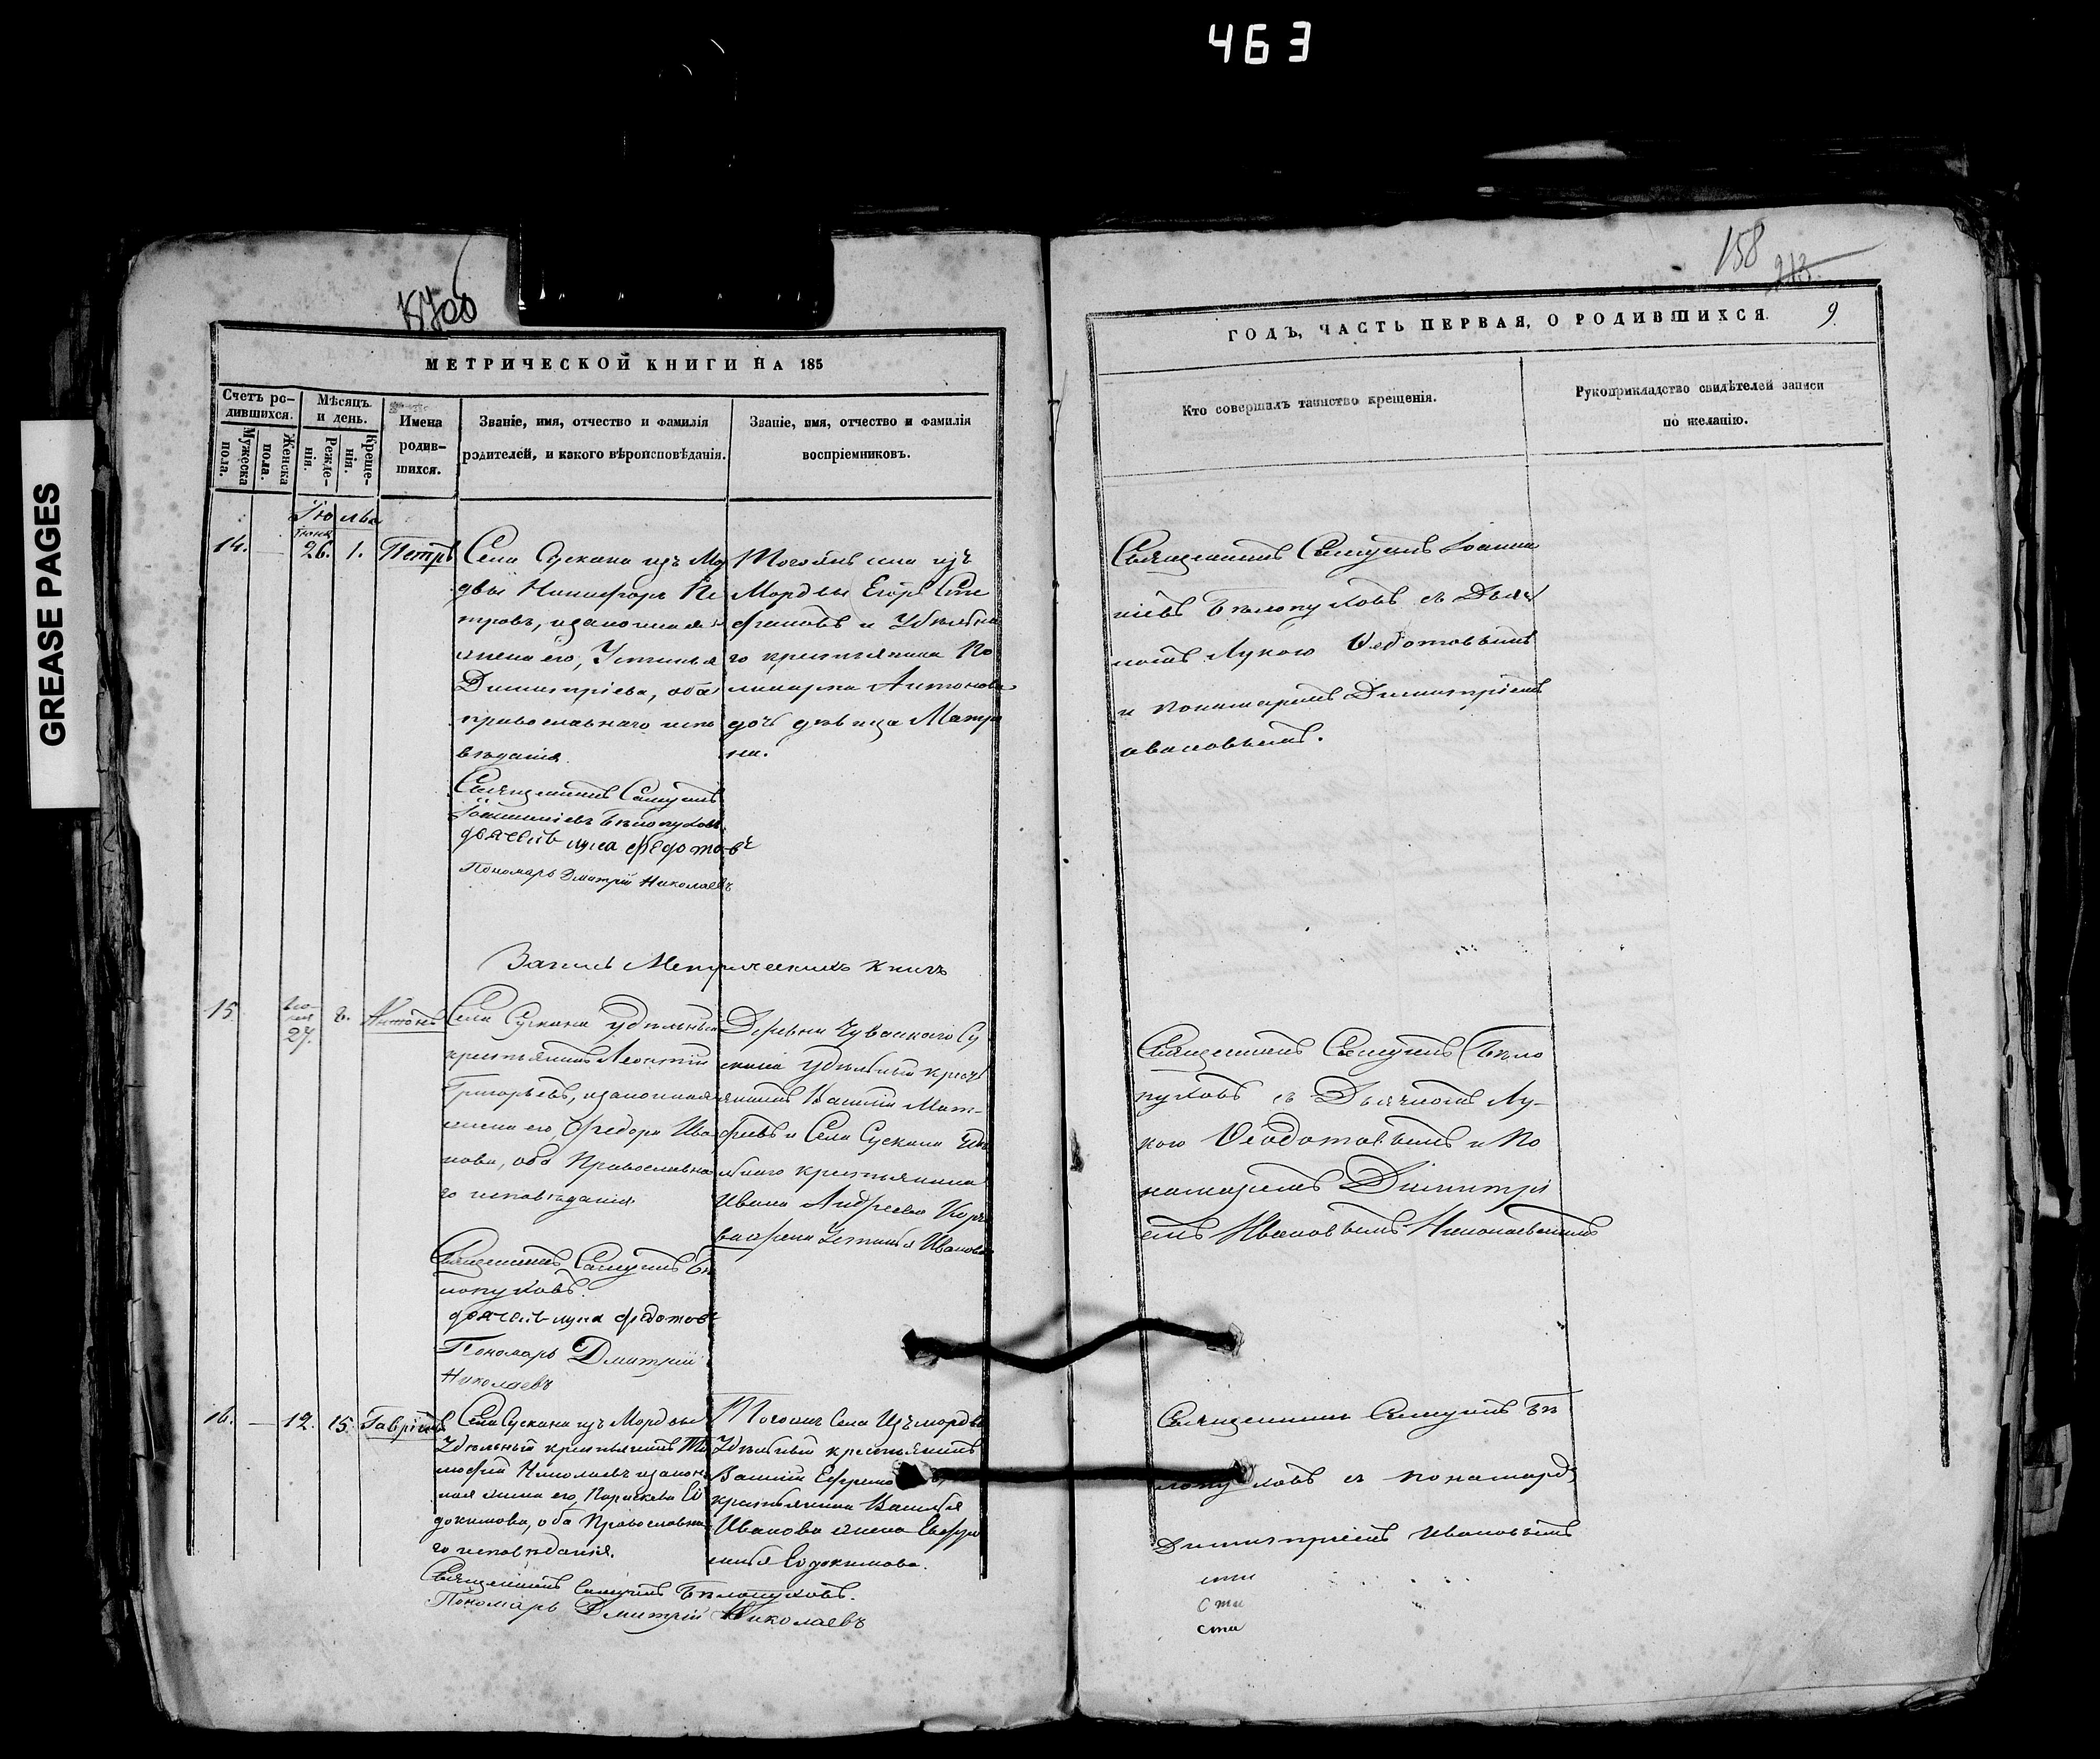 463
GREASE PAGES
158
213.
МЕТРИЧЕСКОЙ КНИГИ НА 185
ГОДЪ, ЧАСТЬ ПЕРВАЯ, О РОДИВШИХСЯ.
9.
Счетъ ро-
дившихся.
Мужеска
пола.
Женска
пола.
Мѣсяцъ
и день.
Рожде-
нія.
Креще-
нія.
Имена
родив-
шихся.
Званіе, имя, отчество и фамилія
родителей, и какого вѣроисповѣданія.
Званіе, имя, отчество и фамилія
воспріемниковъ.
Кто совершалъ таинство крещенія.
Рукоприкладство свидѣтелей записи
по желанію.
Іюль
14.
Іюня
26.
1.
Петръ
Села Сускана изъ Мо
двы Никифоръ Пе
тровъ, и законная
жена его, Устинья
Димитріева, оба
православнаго испо
вѣданія.
Священникъ Самуилъ
Іоанніевъ Бѣлопуховъ
дьячекъ лука федотовъ
Пономарь Дмитрій Николаевъ
Тогожъ села изъ
Мордвы Егоръ Сте
фановъ и Удѣльна
го крестьянина По
ликарпа Антонова
дочь дѣвица Матре
на.
Священникъ Самуилъ Іоанни
ніевъ Бѣлопуховъ съ Дьяч
комъ Лукою Ѳедотовымъ
и Пономаремъ Димитріемъ
ивановымъ.
Запись Метрическихъ книгъ
15.
27.
2.
Антонъ
Села Сускана удѣльный
крестьянинъ Леонтій
Григорьевъ, и законная
жена его, Ѳедора Ива
нова, оба Православна
го исповѣданія.
Священникъ Самуилъ Бѣ
лопуховъ.
дьячекъ лука федотовъ
Пономарь Дмитрій
Николаевъ
Деревни Чувскаго Су
скана удѣльный крест
янинъ Василій Мат-
фѣевъ и Села Сускана Удѣ
льнаго крестьянина
Ивана Андреева
Устинья Иванова
Священникъ Самуилъ Бѣло
пуховъ съ Дьячкомъ Лу-
кою Ѳеодотовымъ и По
намаремъ Димитрі
емъ Ивановымъ Николаевымъ
16.
12.
15.
Гавріилъ
Села Сускана изъ Мордвы
Удѣльный крестьянинъ Ти
моѳей Николаевъ и закон
ная жена его, Параскева Ев
докимова, оба Православна
го исповѣданія.
Священникъ Самуилъ Бѣлопуховъ.
Пономарь Дмитрій Николаевъ
Тогожъ Села Изъ мордвы
Удѣльный крестьянинъ
Василій Ефремовъ,
крестьянина Василья
Иванова жена Евфро
синья Евдокимова.
Священникъ Самуилъ Бѣ
лопуховъ съ понамаремъ
Димитріемъ Ивановымъ